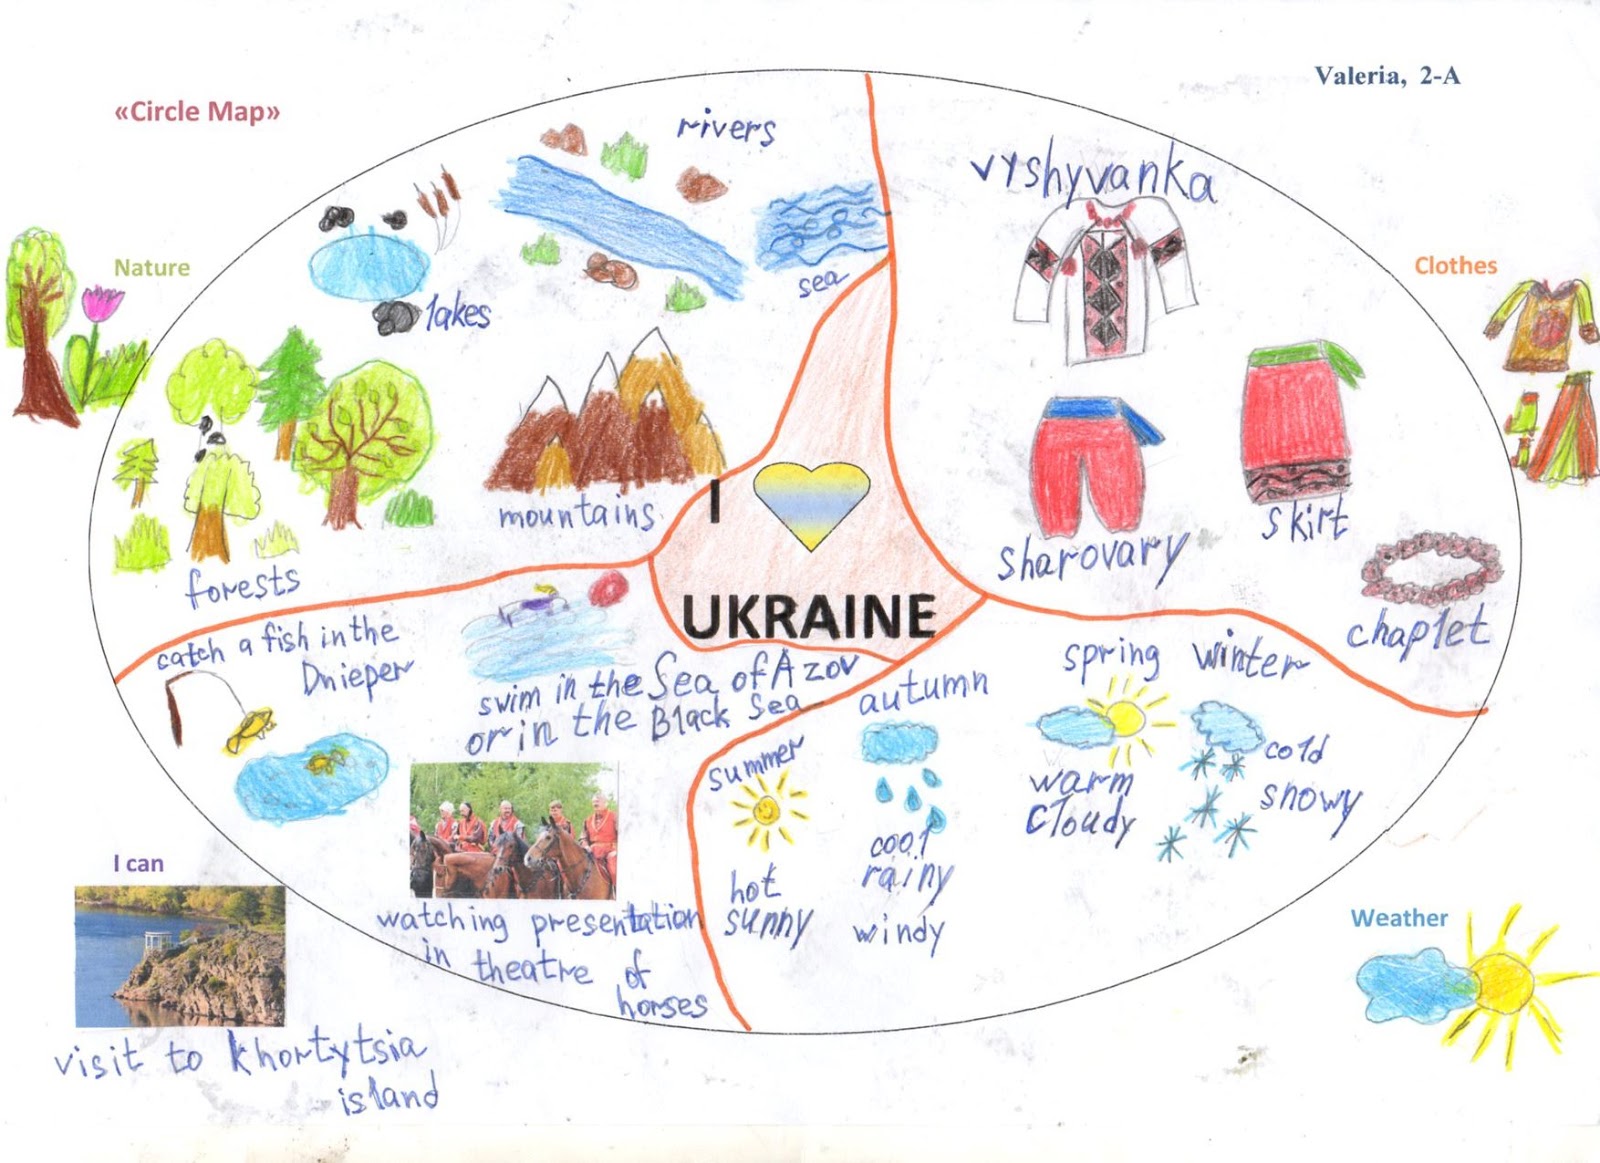 Valeria, 2-A
«Circle Map»
Nature
rivers
lakes
sea
mountains
forests
Clothes
vyshyvanka
sharovary
skirt
chaplet
I
UKRAINE
I can
catch a fish in the
Dnieper
swim in the Sea of Azov
or in the Black Sea
watching presentation
in theatre of
horses
visit to Khortytsia
island
Weather
summer
hot
sunny
autumn
cool
rainy
windy
spring
warm
cloudy
winter
cold
snowy